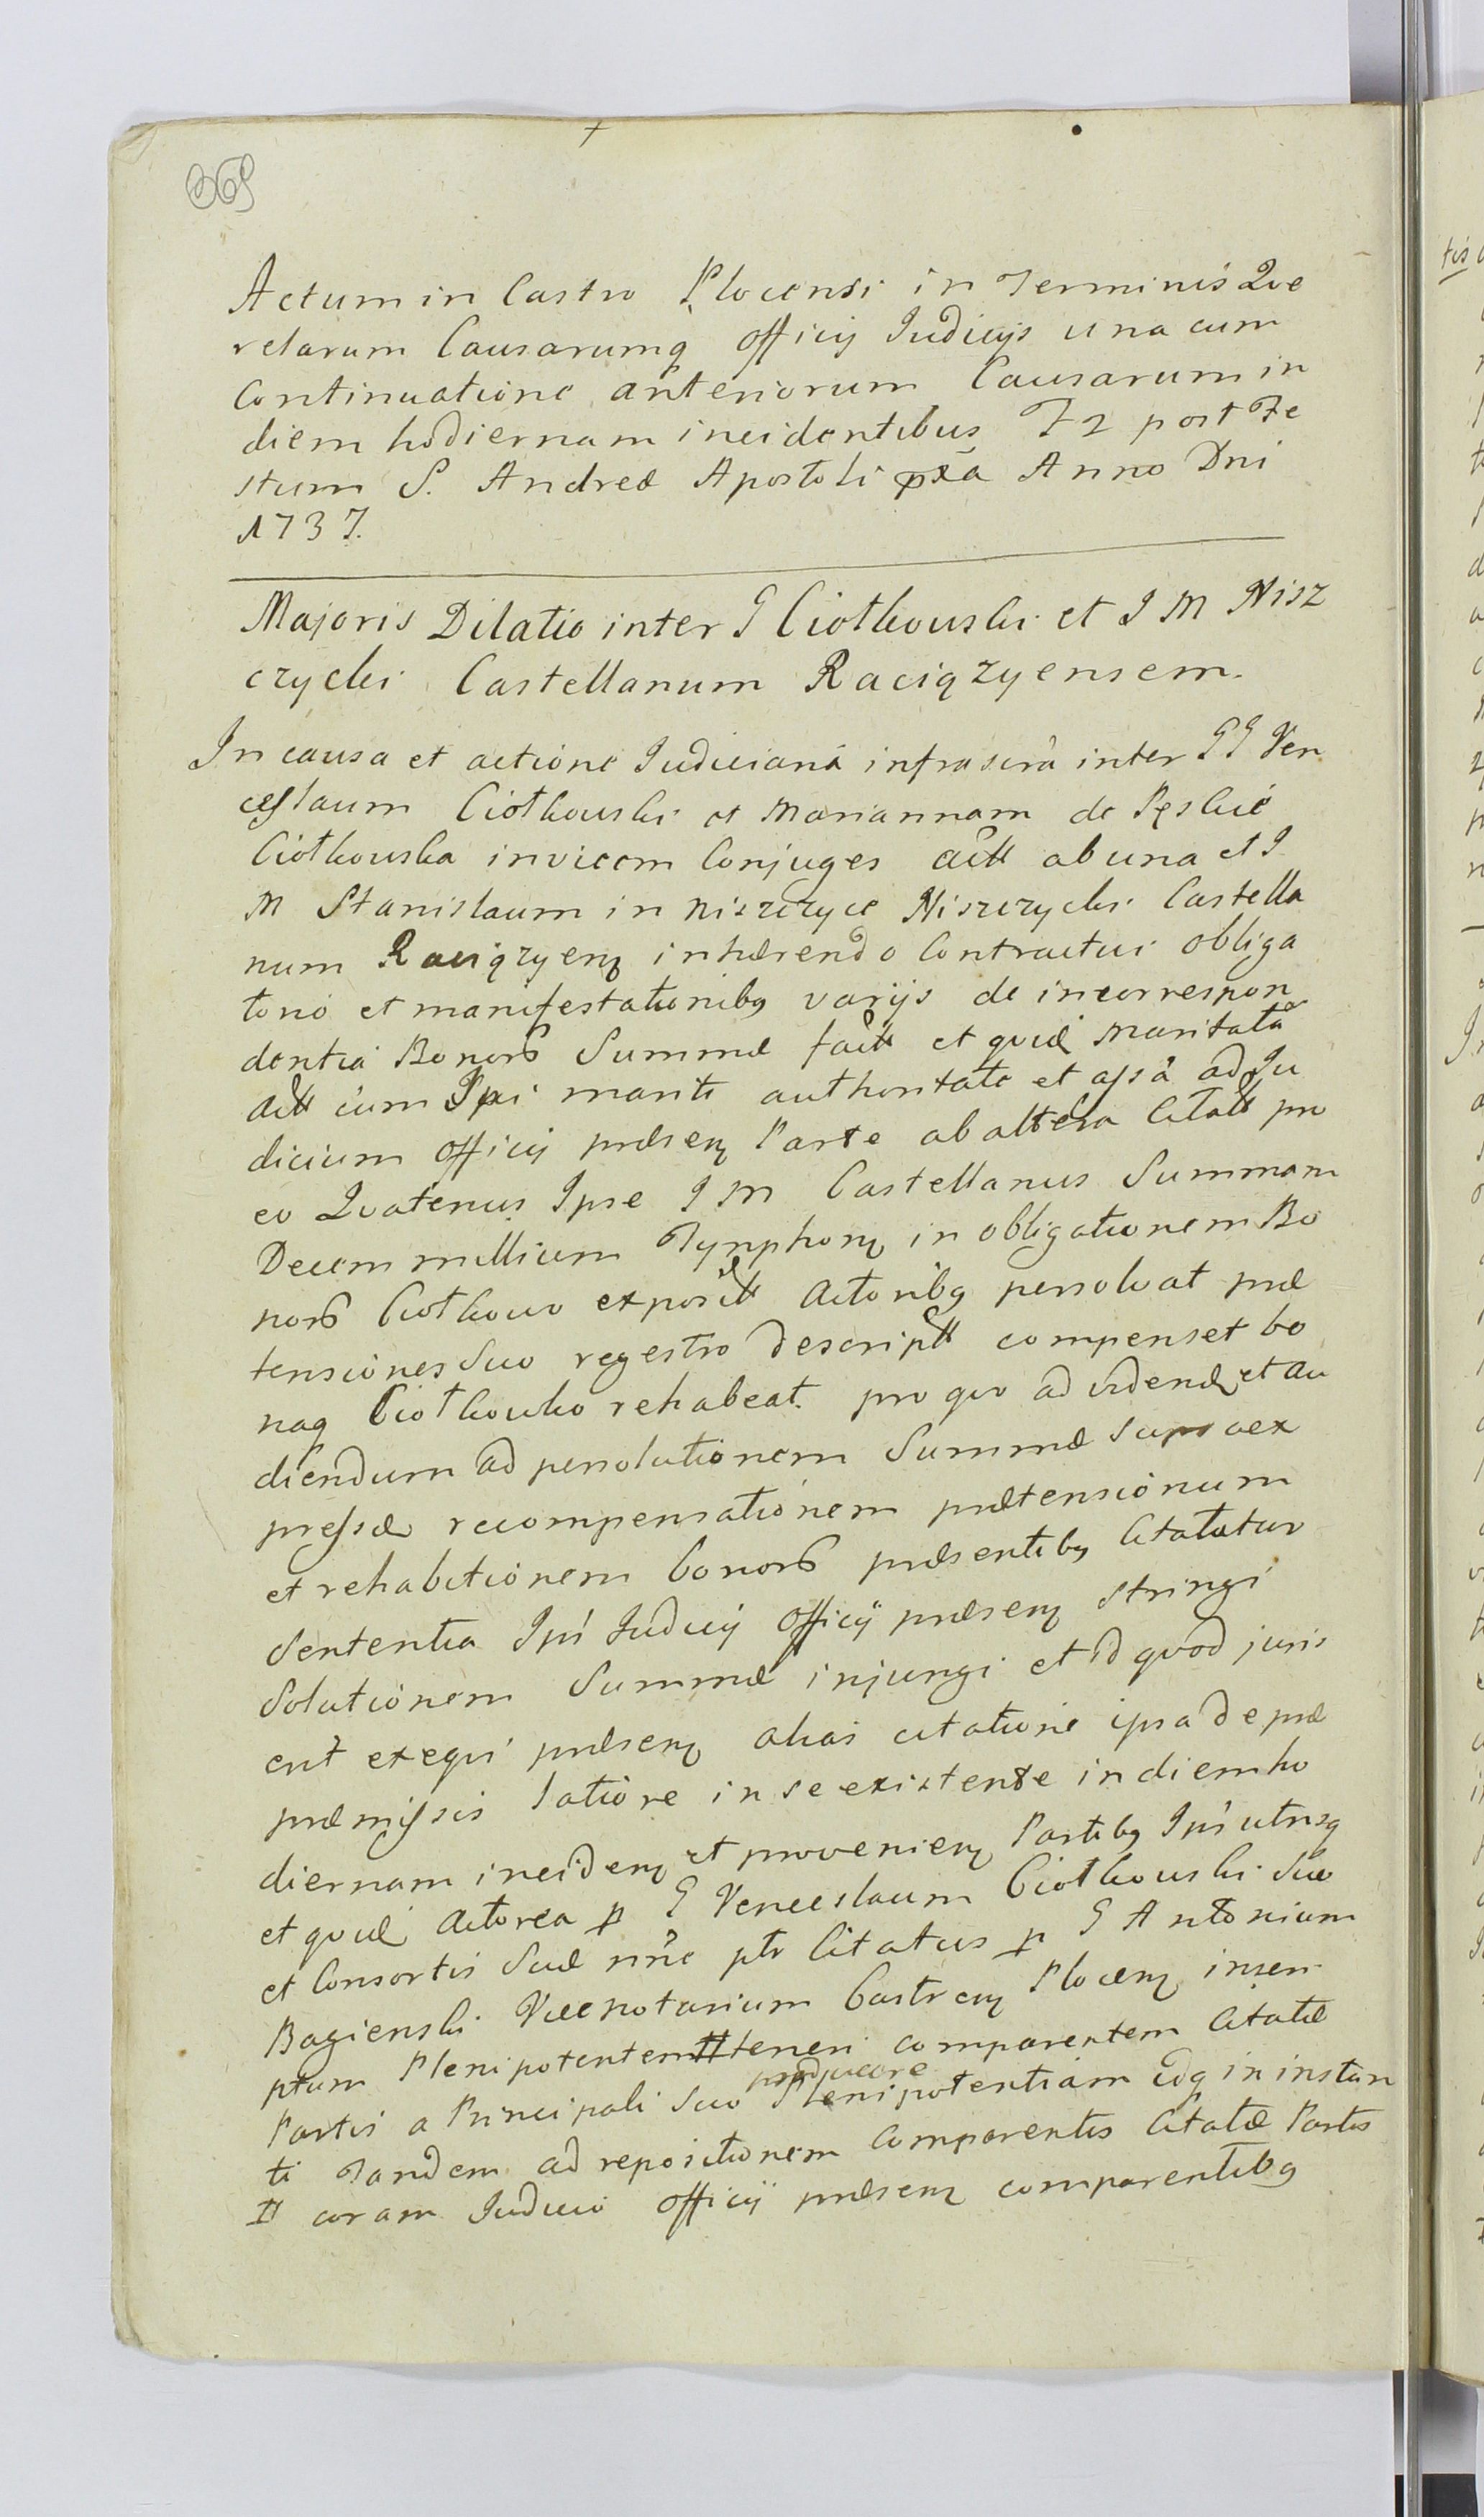 369
Actum in Castro Plocensi in Terminis Que
relarum Causarumq Officij Judicijs una cum
Continuatione anteriorum Causarum in
diem hodiernam incidentibus F2 post Fe
stum S. Andreæ Apostoli pxa Anno Dni
1737.
Majoris Dilatio inter G Ciołkowski et I M Nisz
czycki Castellanum Raciązyensem.
In causa et actione Judiciaria infrascra inter GG Ven
ceslaum Ciołkowski et Mariannam de
Ciołkowska invicem Conjuges actt ab una et I
M Stanislaum in Niszczyce Niszczycki Castella
num Raciązyenq inhærendo Contractui obliga
torio et manifestationibq varijs de incorrespon
dentia Bonorb Summæ factt et quid maritata
actt cum Ipsi mariti authoritate et assa ad Ju
dicium Officij præsenq Parte ab altera Citatt pro
eo Quatenus Ipse I M Castellanus Summam
Decem millium Tynphonq in obligationem Bo
norb Ciołkowo exposit Actoribq persolvat præ
tensiones suo regestro descriptt compenset bo
naq Ciołkowko rehabeat. pro quo ad videnđ et au
diendum ad persolutionem Summæ supraex
pressæ recompensationem prætensionum
et rehabitionem bonorb præsentibq Citatutur
Sententia Ipsi Judicij Officij præsenq stringi
Solutionem Summæ injungi et id quod juris
erit exequi præsenq alias citatione ipsa de præ
præmissis latiore in se existente in diem ho
diernam incidenq et provenienq Partibq Ipsi utrisq
et quid Actorea p G Venceslaum Ciołkowski suo
et Consortis Suæ nne ptr Citatus p G Antonium
Bagienski Vicenotarium Castrenq Plocenq inscri
ptum Plenipotentem teneri comparentem Citatæ
Partis a Principali suo producere Plenipotentiam idq in instan
ti Tandem ad repositionem Comparentis Citatæ Partis
II coram Judicio Officij præsenq comparentibq